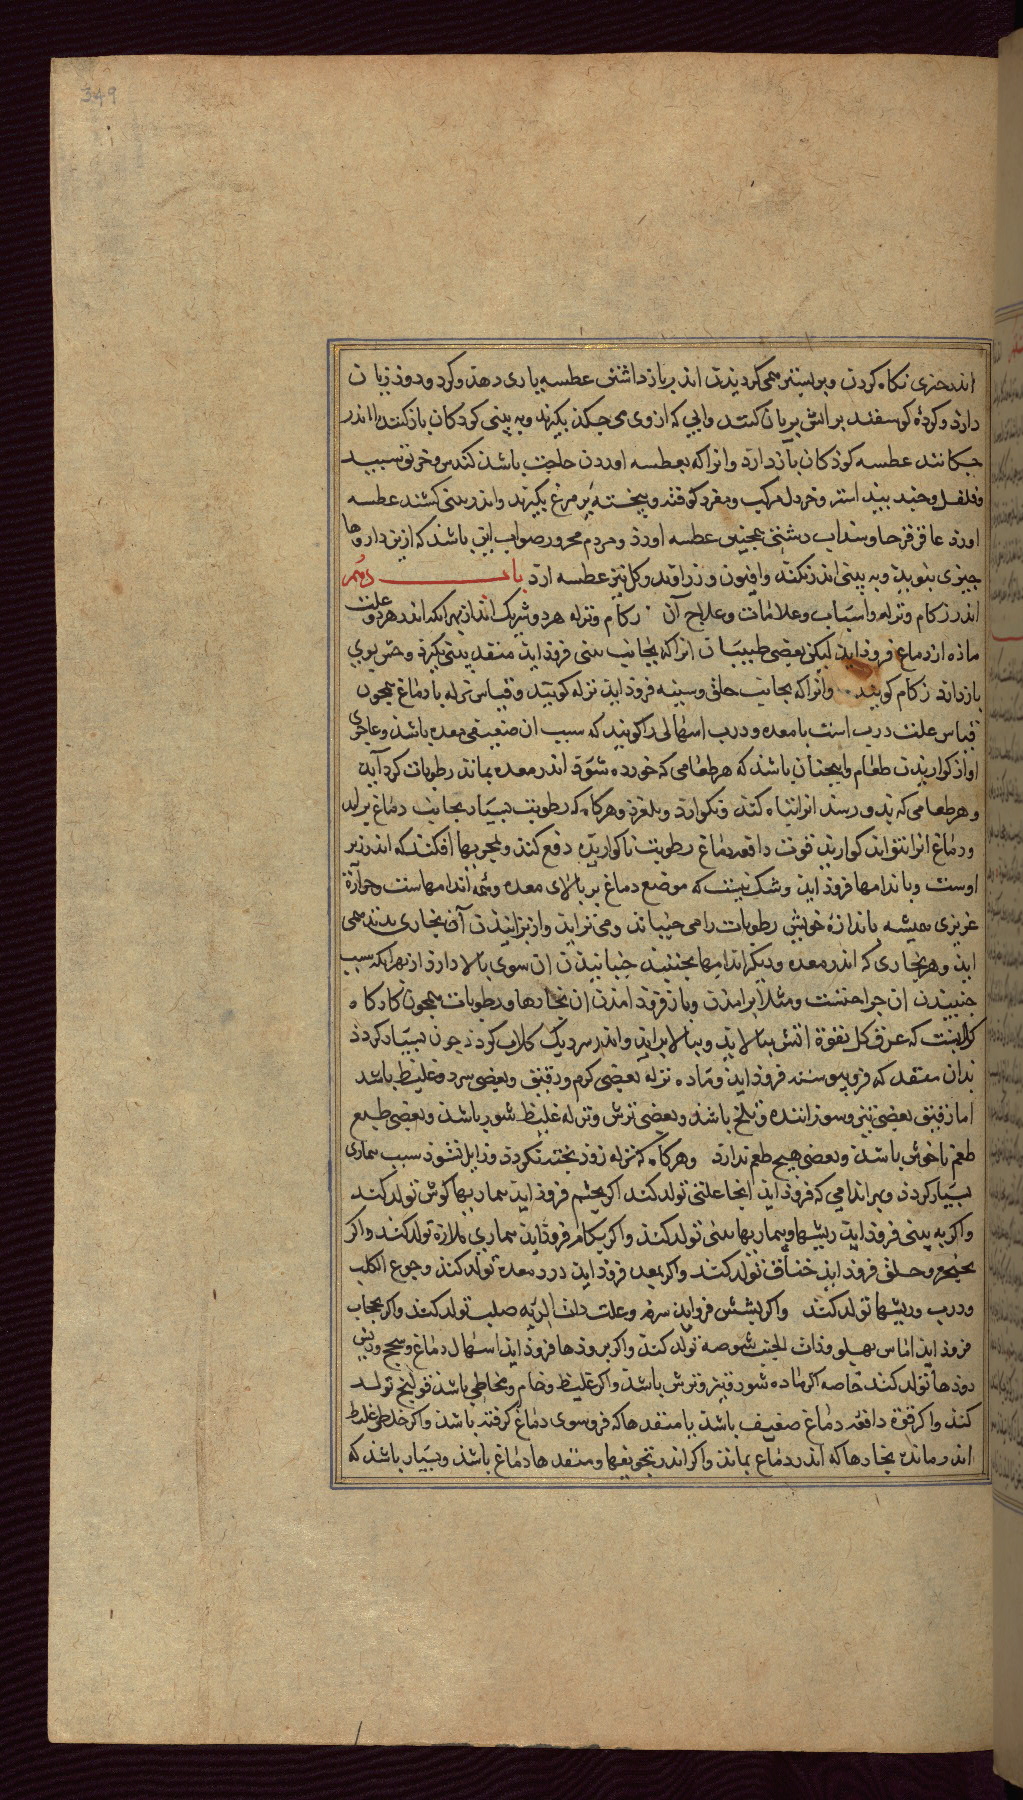 349
اندر چیزی نکاه کردن وبر بستر همی کردیدن اندر بازداشتن عطسه یاری دهد وکرد ودود زیان
دارد وکردهٔ کوسفند بر اتش بریان کنند وابی که از وی می چکد بکیرند وبه بینی کودکان باز کنند یا اندر
چکانند عطسه کودکان بازدارد وانرا که بعطسه اوردن حاجت باشد کندس وخربق سپید
وفلفل وجند بیدستر وخردل مرکب ومفرد کوفته وبیخته پر مرغ بکیرند واندر بینی کشند عطسه
اورد عاقرقرحا وسداب دشتی همچنین عطسه اورد ومردم محرور صواب این باشد که ازین داروها
چیزی ببوید وبه بینی اندر نکند وافیون وزراوند وکل نیز عطسه ارد باب دوم
اندر زکام ونزله واسباب وعلامات وعلاج آن زکام ونزله هر دو شریک اند از بهر انکه اندر هر دو علت
ماده از دماغ فروذ اید لیکن بعضی طبیبان انرا که بجانب بینی فروذ اید منفذ بینی بکیرد وحس بوی
بازدارد زکام کویند وانرا که بجانب حلق وسینه فروذ اید نزله کویند وقیاس نزله با دماغ همچون
قیاس علت درب است با معده ودرب اسهالی را کویند که سبب ان ضعیفی معده باشد وعاجزی
او از کواریدن طعام وانچنان باشد که هر طعامی که خورده شود اندر معده بماند رطوبات کرد آید
وهر طعامی که بدو رسد انرا تباه کند ونکوارد وبلغزد وهرکاه که رطوبت بسیار بجانب دماغ براید
ودماغ انرا نتواند کوارید قوت دافعه دماغ رطوبت ناکواریده دفع کند وبمجریها افکند که اندر زیر
اوست وباندامها فروذ اید وشک نیست که موضع دماغ بر بالای معده وهمه اندامهاست وحرارة
غریزی همیشه باندازهٔ خویش رطوبات را می جنباند ومی پزاند واز پزانیدن آن بخاری بلند همی
اید وهر بخاری که اندر معده ودیکر اندامها بجنبد جنبانیدن ان سوی بالا دارد از بهر انکه سبب
جنبیدن ان حرارتست ومثل برامدن وباز فروذ امدن ان بخارها ورطوبات همچون کار کاه
کلابست که عرق کل بقوة اتش ببالاید وببالا براید واندر سر دیک کلاب کرد چون بسیار کردد
بدان منفذ که فرو پیوسته فروذ اید وماده نزله بعضی کرم ورقیق وبعضی سرد وغلیظ باشد
اما رقیق بعضی تیز وسوزاننده وتلخ باشد وبعضی ترش ونزله غلیظ شور باشد وبعضی طبع
طعم ناخوش باشد وبعضی هیچ طعم ندارد وهرکاه که نزله زود پخته نکردد وزایل نشود سبب بیماری
بسیار کردد وبهر اندامی که فروذ اید انجا علتی تولد کند اکر بچشم فروذ اید بیماریها کوش تولد کند
واکر به بینی فروذ اید ریشها وبیماریها بینی تولد کند واکر بکام فروذ اید بیماری ملازه تولد کند واکر
بحنجره وحلق فروذ اید خناق تولد کند واکر بمعده فروذ اید درد معده تولد کند وجوع الکلب
ودرب وریشها تولد کند واکر بشش فرو اید سرفه وعلت ذات الریه صلب تولد کند واکر بحجاب
فروذ اید اماس پهلو وذات الجنب شوصه تولد کند واکر بروذها فروذ اید اسهال دماغی وسحج وریش
روذها تولد کند خاصه اکر ماده شور وتیز وترش باشد واکر غلیظ وخام ومخاطی باشد قولنج تولد
کند واکر قوة دافعه دماغ ضعیف باشد یا منفذها که فرو سوی دماغ کرفته باشد واکر خلطی غلیظ
اندر مانده بخارها که اندر دماغ بماند واکر اندر تجویفها ومنفذها دماغ باشد وبسیار باشد که